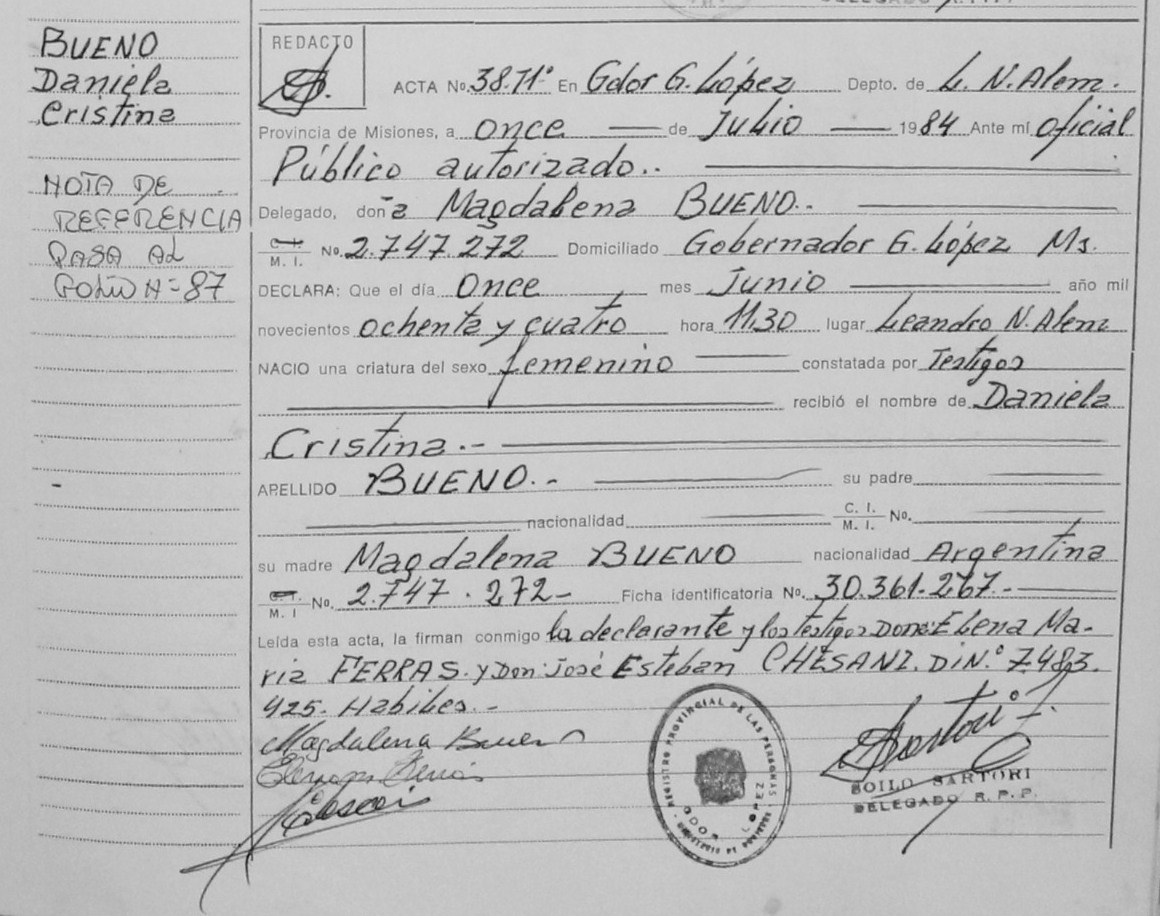 BUENO
Daniela
Cristina
NOTA DE
REFERENCIA
PASA AL
FOLIO Nº 87
REDACTO
ACTA No. 38.71º En Gdor G. López Depto. de L. N. Alem.
Provincia de Misiones, a once de Julio 1984 Ante mí oficial
Público autorizado..
Delegado, doña Magdalena BUENO..
C. I. M. I. No. 2.747.272 Domiciliado Gobernador G. López Ms.
DECLARA: Que el día Once mes Junio año mil
novecientos ochenta y cuatro hora 11,30 lugar Leandro N. Alem
NACIO una criatura del sexo femenino constatada por Testigos
recibió el nombre de Daniela
Cristina.-
APELLIDO BUENO.- su padre
nacionalidad C. I. M. I. No.
su madre Magdalena BUENO nacionalidad Argentina
C. I. M. I No. 2.747.272- Ficha identificatoria No. 30.361.267.-
Leída esta acta, la firman conmigo la declarante y los testigos Doña: Elena Ma-
ria FERRAS. y Don: José Esteban CHESANI. D.I N.º 7.483.
925. Habiles.-
Magdalena Bueno
REGISTRO PROVINCIAL DE LAS PERSONAS
GDOR. LOPEZ
BOILO SARTORI
DELEGADO R. P. P.